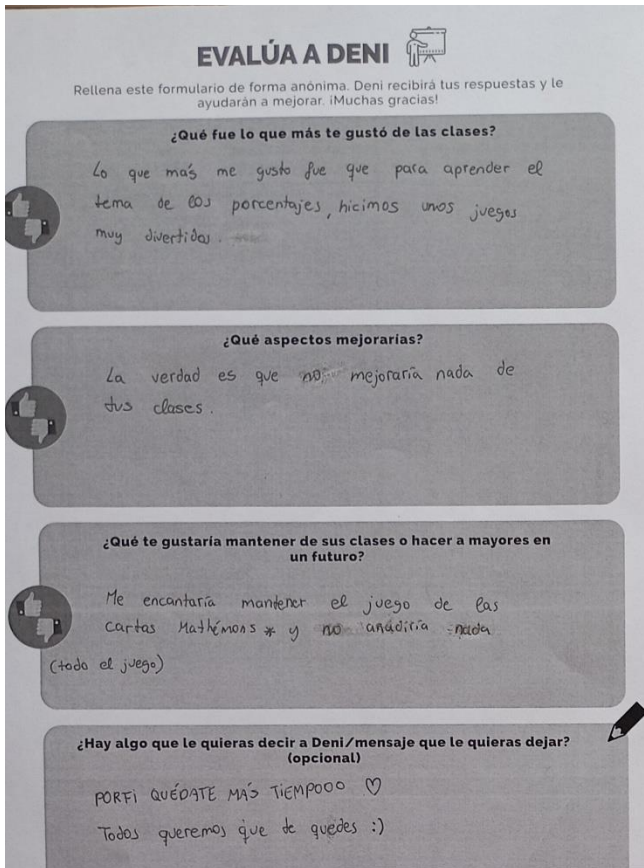 EVALÚA A DENI
Rellena este formulario de forma anónima. Deni recibirá tus respuestas y le
ayudarán a mejorar. ¡Muchas gracias!
¿Qué fue lo que más te gustó de las clases?
Lo que más me gusto fue que para aprender el
tema de los porcentajes, hicimos unos juegos
muy divertidos.
¿Qué aspectos mejorarías?
La verdad es que no mejoraría nada de
tus clases.
¿Qué te gustaría mantener de sus clases o hacer a mayores en
un futuro?
Me encantaría mantener el juego de las
cartas Mathémons * y no añadiría nada
(todo el juego)
¿Hay algo que le quieras decir a Deni/mensaje que le quieras dejar?
(opcional)
PORFI QUÉDATE MÁS TIEMPOOO ♡
Todos queremos que de quedes :)